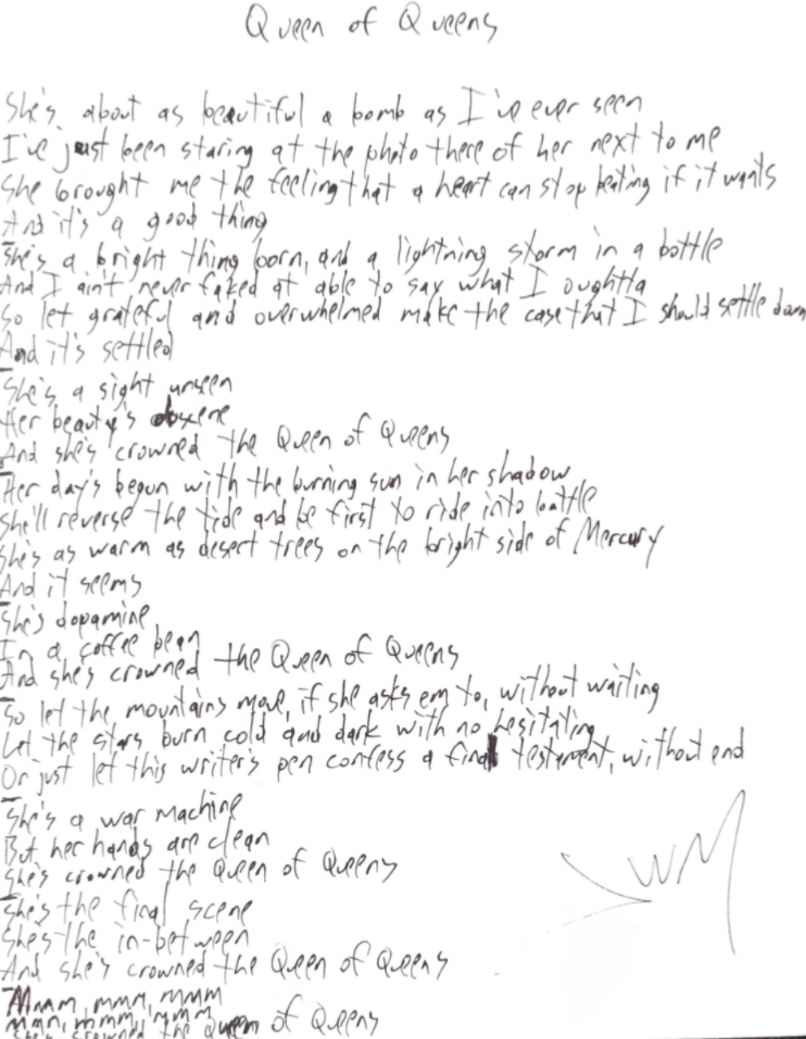 Queen of Queens
She's about as beautiful a bomb as I've ever seen
I've just been staring at the photo there of her next to me
She brought me the feeling that a heart can stop beating if it wants
And it's a good thing
She's a bright thing born, and a lightning storm in a bottle
And I ain't never faked at able to say what I oughtta
So let grateful and overwhelmed make the case that I should settle down
And it's settled
She's a sight unseen
Her beauty's obscene
And she's crowned the Queen of Queens
Her day's begun with the burning sun in her shadow
She'll reverse the tide and be first to ride into battle
She's as warm as desert trees on the bright side of Mercury
And it seems
She's dopamine
In a coffee bean
And she's crowned the Queen of Queens
So let the mountains move, if she asks em to, without waiting
Let the stars burn cold and dark with no hesitating
Or just let this writer's pen confess a final testament, without end
She's a war machine
But her hands are clean
She's crowned the Queen of Queens
She's the final scene
She's the in-between
And she's crowned the Queen of Queens
Mmmm, mmm, mmmm
Mmm, mmmm, mmm
She's crowned the Queen of Queens
WM